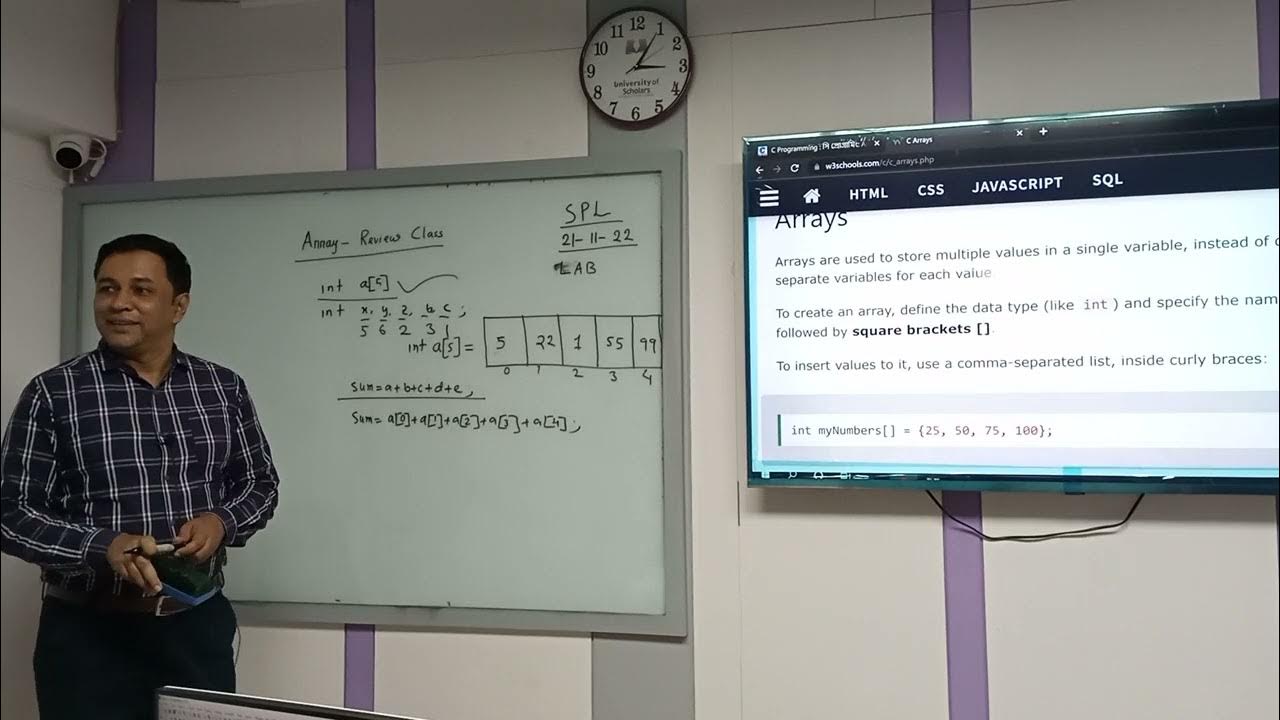 12 1 2 3 4 5 6 7 8 9 10 11
University of
Scholars
Array - Review Class
SPL
21-11-22
LAB
int a[5]
int x, y, z, b, c ;
5 6 2 3 1
int a[5] = 5 22 1 55 99
0 1 2 3 4
Sum = a+b+c+d+e;
Sum = a[0]+a[1]+a[2]+a[3]+a[4];
C Programming C Arrays
w3schools.com/c/c_arrays.php
HTML CSS JAVASCRIPT SQL
Arrays
Arrays are used to store multiple values in a single variable, instead of
separate variables for each value
To create an array, define the data type (like int ) and specify the nam
followed by square brackets [].
To insert values to it, use a comma-separated list, inside curly braces:
int myNumbers[] = {25, 50, 75, 100};